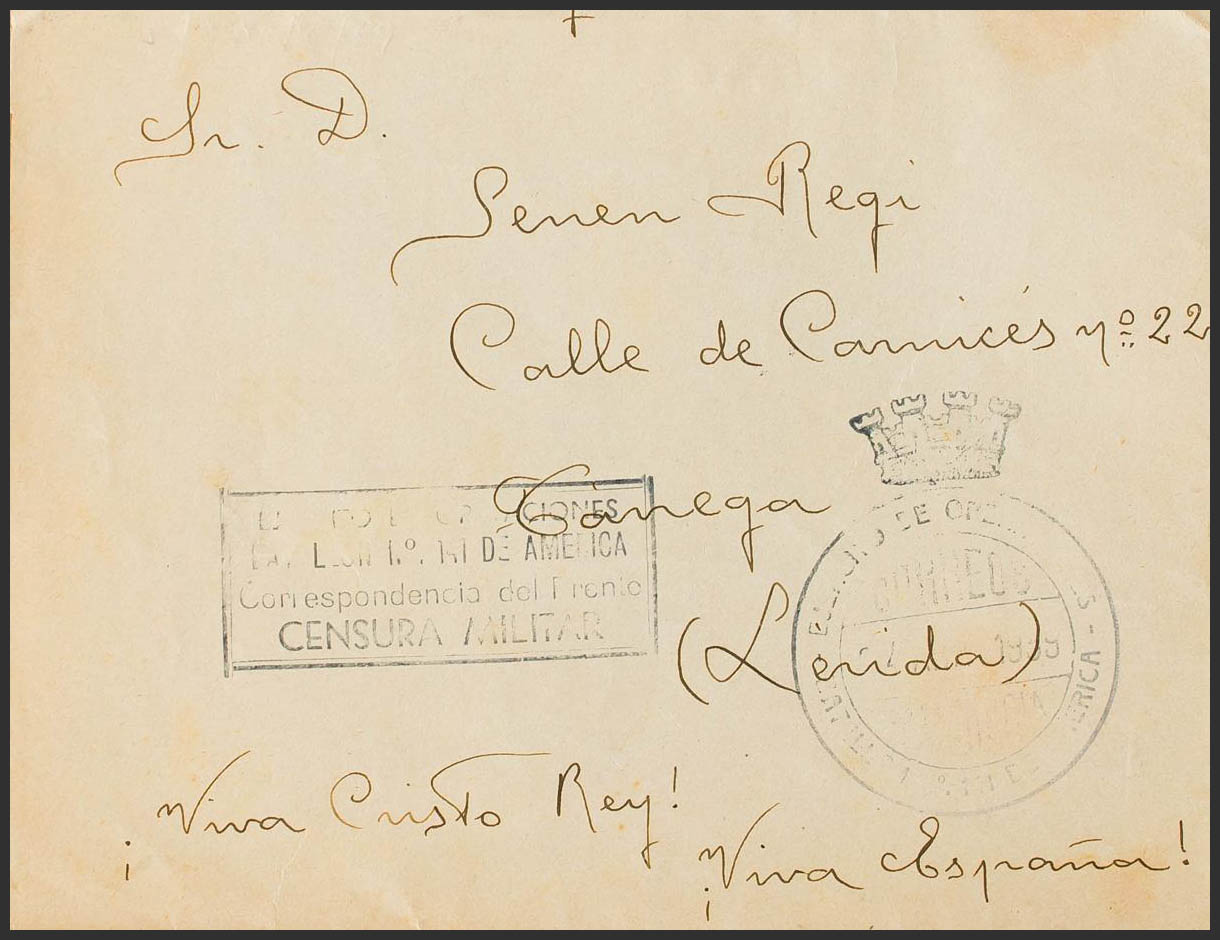 Sr. D.
Senen Regi
Calle de Carnicés nº 22
Tárrega
(Lerida)
DE AMERICA
Correspondencia del Frente
CENSURA MILITAR
EJERCITO DE
CORREOS
¡Viva Cristo Rey!
¡Viva España!